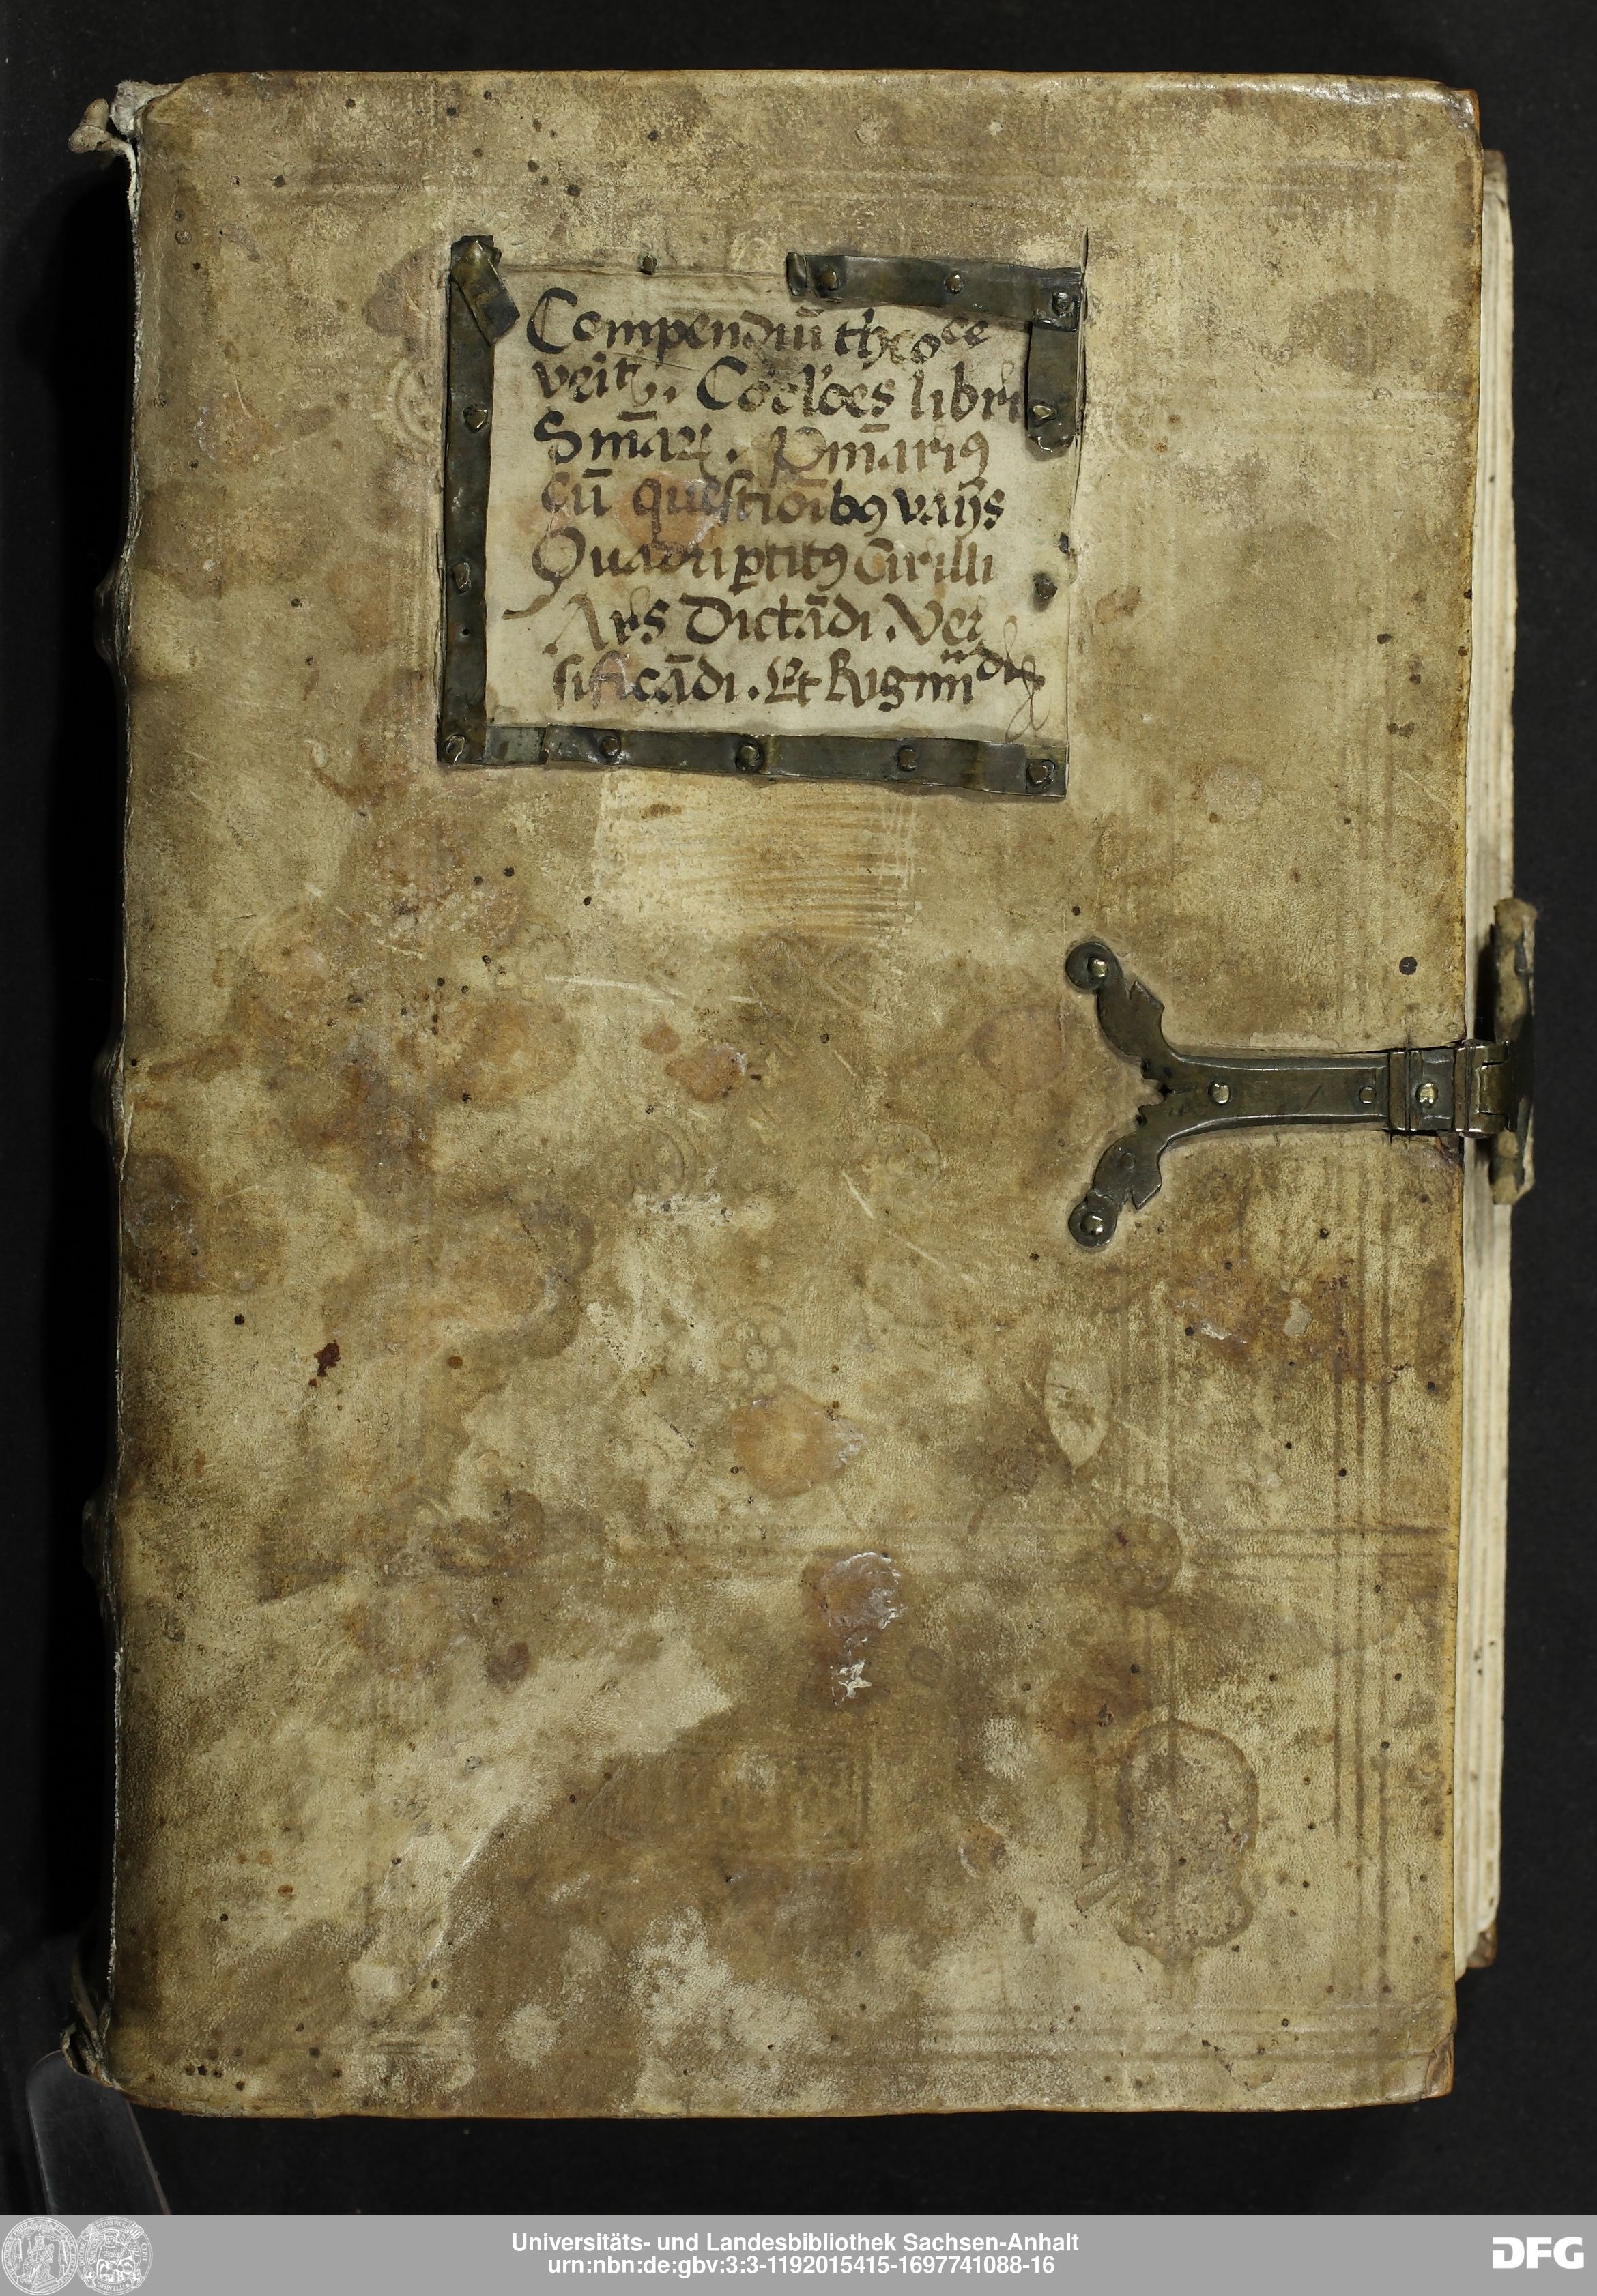 Compendiū theoce
veritꝭ. Cōclōes libri
Sm̄aꝝ. Pm̄ariꝯ
cū questiōibꝯ vaijs
Quadriꝑtitꝯ Cirilli
Ars Dictādi. Ver
sificādi. Et
Universitäts- und Landesbibliothek Sachsen-Anhalt
urn:nbn:de:gbv:3:3-1192015415-1697741088-16
DFG